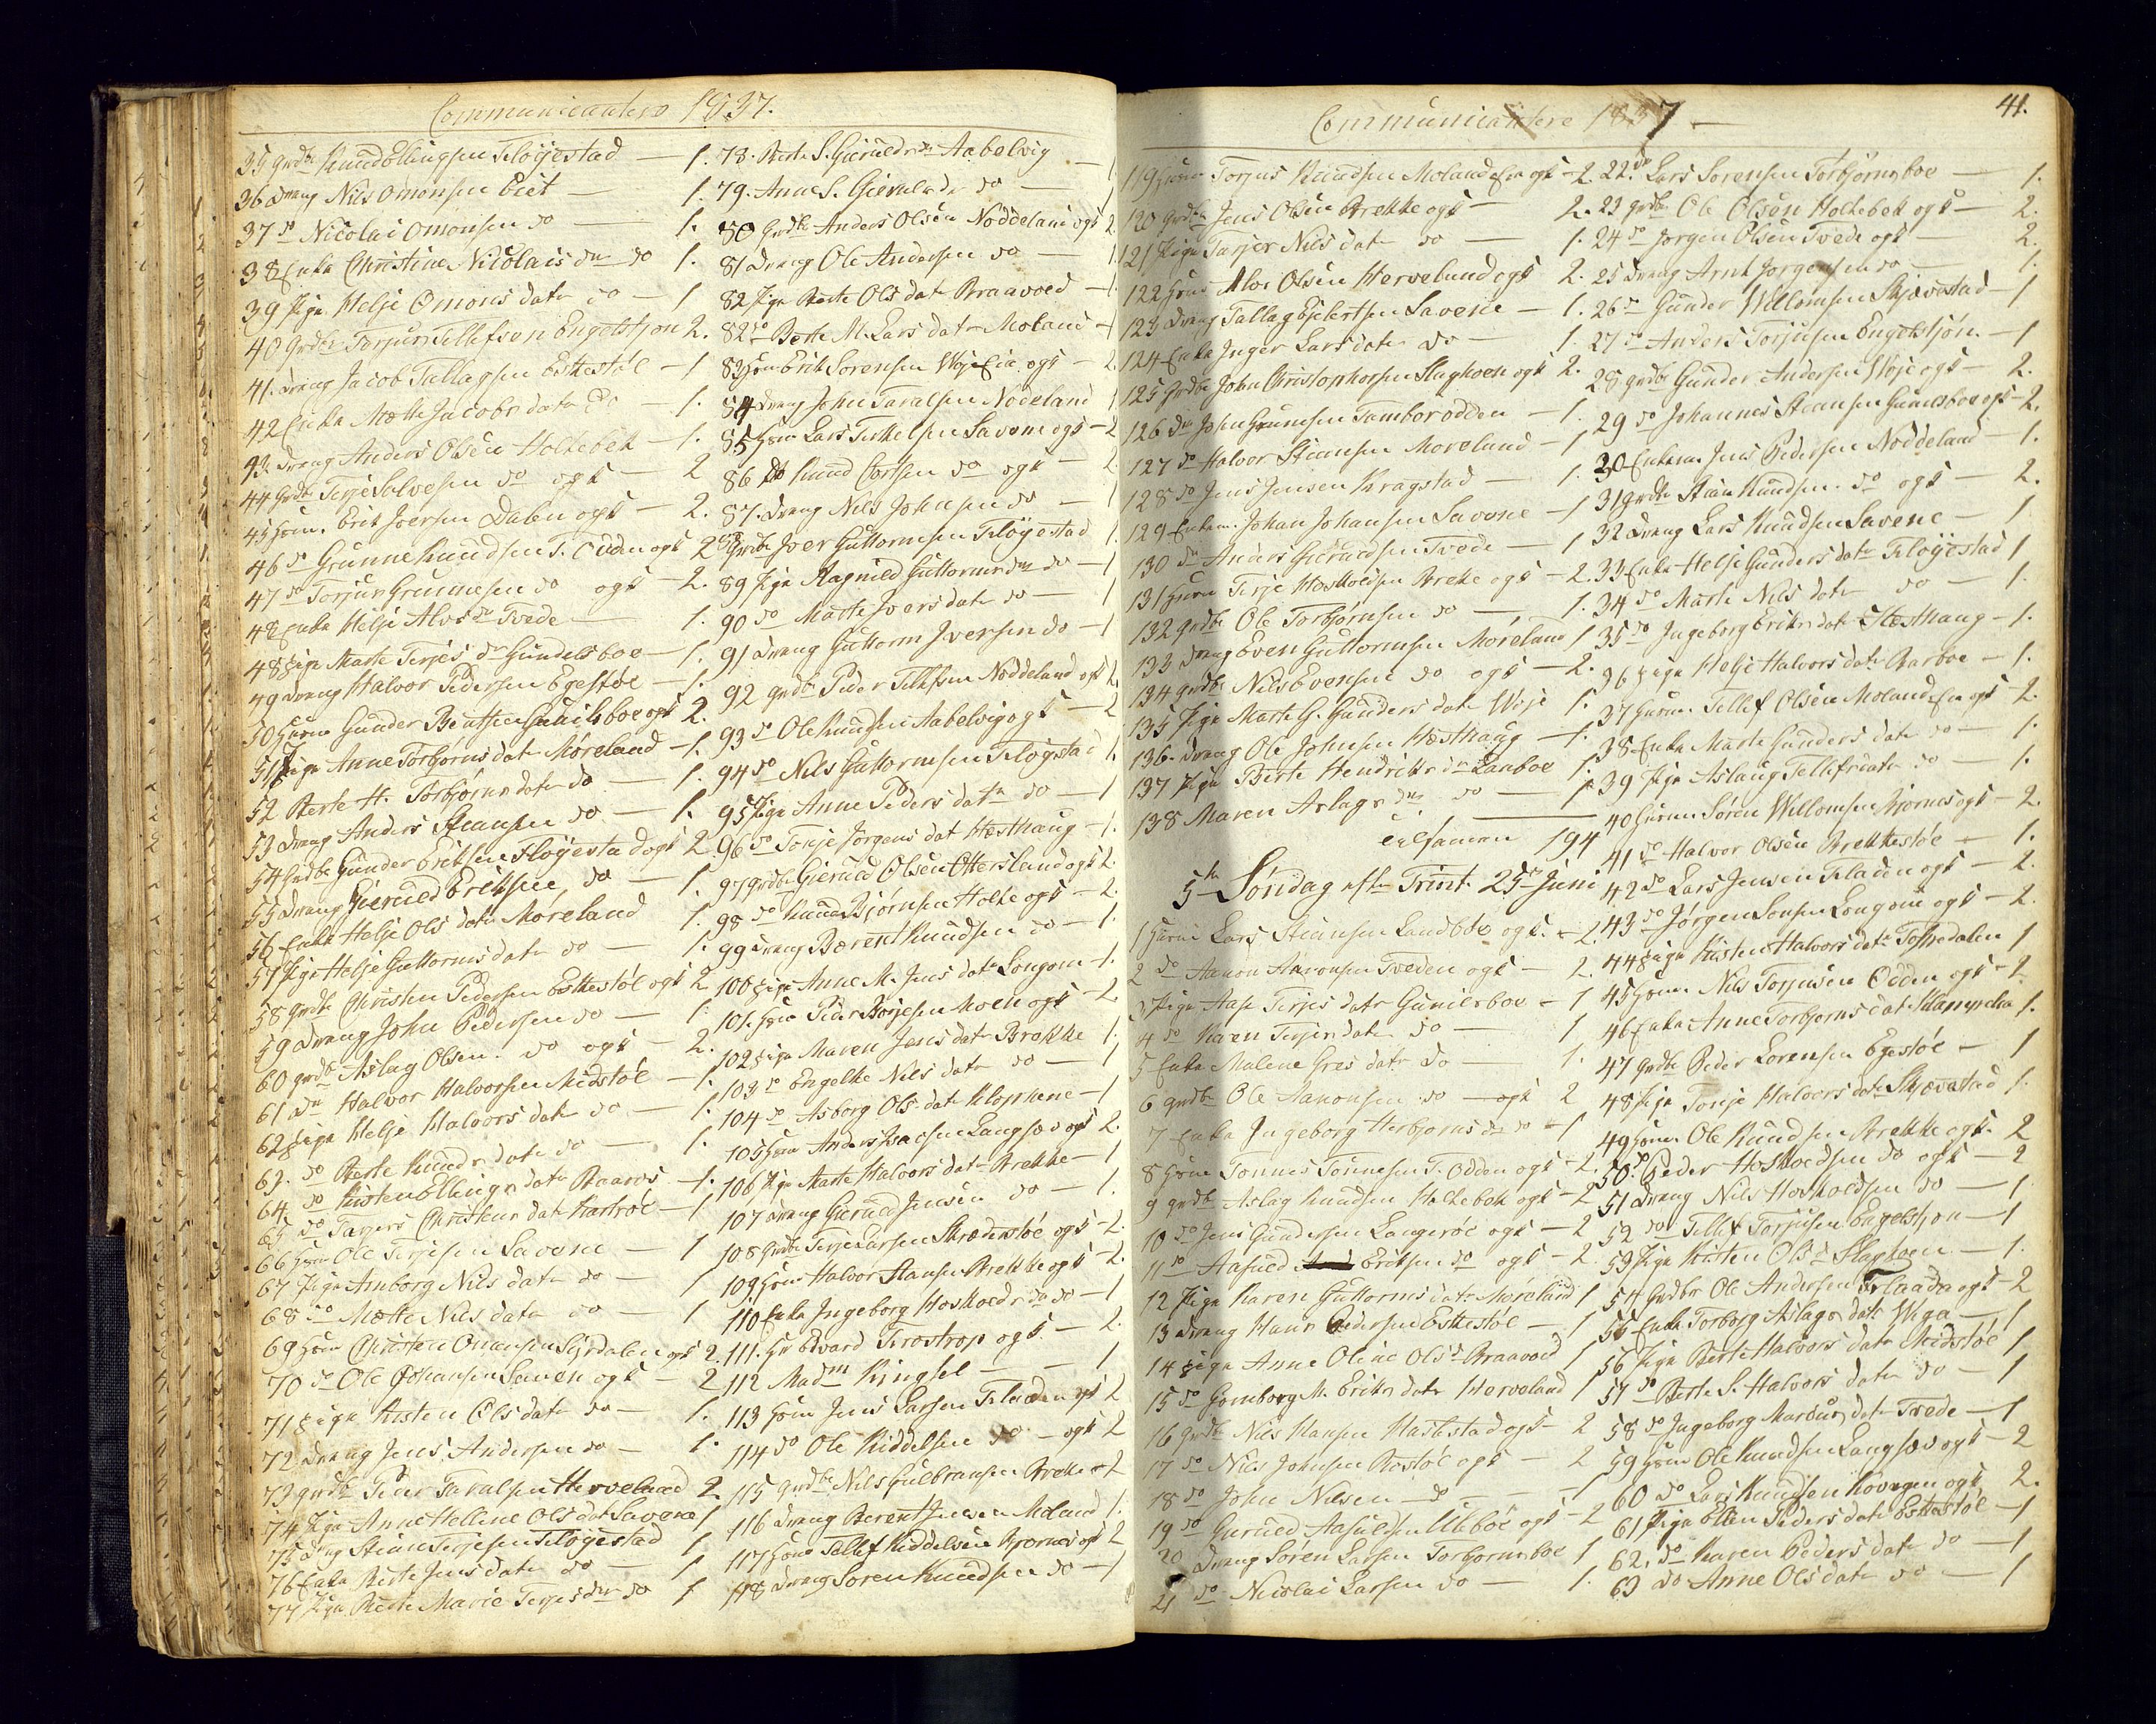 Communicantere 1837.
35 grdbr Knud Ellingsen Fløÿestad — 1.
36 Dreng Nils Omonsen Eiet — 1.
37 do Nicolai Omonsen do — 1.
38 Enke Christine Nicolais dtr do 1.
39 Pige Helje Omons datr do — 1
40 Grdbr Torjus Tellefsen Engelstjon 2.
41. Dreng Jacob Tallagsen Eskestøl — 1
42 Enke Mætte Jacobs datr do — 1.
43. Dreng Anders Olsen Holtebek — 1.
44 Grdbr Terje Salvesen do ogs — 2
45 Huusm. Erik Joersen Dalen ogs — 2.
46 do Grunne Knudsen T. Odden ogs 2
47 do Torjus Grunnesen do ogs — 2.
48 Enke Helje Alvs dr Tvede — 1.
48 Pige Marte Terjes dr Gundelsboe — 1.
49 Dreng Halvor Pedersen Egestøl — 1.
50 Huusm Gunder Bentsen Gunilsboe ogs 2.
51 Pige Anne Torbjørns datr Møreland — 1.
52 Berte H. Torbjørns datr do — 1.
53 Dreng Anders Steansen do — 1.
54 Grdbr Gunder Eriksen Fløyestad ogs 2
55 Dreng Gieruld Eriksen, do — 1.
56 Enke Helje Ols datr Møreland 1.
57 Pige Helje Guttorms datr do — 1.
58 grdbr Christen Pedersen Eskestøl ogs 2
59 Dreng John Pedersen do — 1.
60 grdbr Aslag Olsen. do ogs — 2.
61 do Halvor Halvorsen Midstøl — 1.
62 Pige Helje Halvors datr do — 1.
63. do Berte Knuds datr do — 1.
64. do Kisten Ellings datr Baaros — 1.
65 do Targers Christens datr — 1
66 Huusm Ole Terjesen Savene — 1
67 Pige Amborg Nils datr do — 1
68 do Mætte Nils datr do — 1
69 Huusm Christen Omonsen ogs 2.
70 do Ole Johansen Saven ogs — 2
71 Pige Kisten Ols datr do — 1.
72 Dreng Jens Andersen do — 1.
73 grdbr Peder Taralsen Herveland 2.
74 Pige Anne Hellene Ols datr Savene 1
75 Dreng Stian Terjesen Fløyestad 1
76 Enke Berte Jens datr do — 1
77 Pige Berte Marie Terjes dtr do 1
78. Berte S. Gierulds dr Aabelvig — 1
79. Anne S. Gierulds dr do — 1
80 Grdbr Anders Olsen Noddeland ogs 2
81 Dreng Ole Andersen do — 1.
82 Pige Berte Ols datr Braavoed — 1
82 do Berte M. Lars datr Moland — 1
83 Huusm Erik Sorensen Woje Eie, ogs — 2.
84 Dreng John Taralsen Nodeland 1
85 Huusm Lars Terkelsen Savene ogs — 2
86 do Knud Cortsen do ogs — 2.
87. Dreng Nils Johnsen do — 1
88 Grdbr Joer Guttormsen Fløyestad 1.
89 Pige Ragnild Guttorms dtr do — 1
90 do Matte Joers datr do — 1
91 Dreng Guttorm Iversen do — 1
92 grdbr Peder Tellefsen Noddeland ogs 2
93 do Ole Knudsen Aabelvig ogs — 2
94 do Nils Guttormsen Fløystad 1.
95 Pige Anne Peders datr do — 1
96 do Tonje Jørgens dat Hæsthaug — 1.
97 grdbr Gieruld Olsen Ottersland ogs 2.
98 do Knud Bjørnsen Holte ogs — 2.
99 Dreng Bærent Knudsen do — 1.
100 Pige Anne M. Jens datr Longom — 1.
101. Huusm Peder Børjesen Moen ogs — 2.
102 Pige Maren Jens datr Brekke 1.
103 do Engelke Nils datr do — 1
104 do Asborg Ols datr Klophene — 1
105 Huusm Anders Isacsen Langsæv ogs 2.
106 Pige Marte Halvors datr Brekke — 1
107 Dreng Gieruld Jensen do — 1.
108 Grdbr Terje Larsen Skrædderstøe ogs — 2.
109 Huusm Halvor Steansen Brekke ogs — 2.
110 Enke Ingeborg Hoskolds dr do — 1
111. Hr Edvard Terostrop ogs — 2.
112 Madm Ringsel — 1
113 Huusm Jens Larsen Fladen ogs 2
114 do Ole Kiddelsen do — ogs 2
115 grdbr Nils Gulbransen Brekke o 2
116 Dreng Berent Jensen Moland 1.
117 Huusm Tellef Kiddelsen Bjornes ogs 2
118 Dreng Soren Knudsen do — 1
Communicantere 1837 —
41.
119 Huusm Torjus Knudsen Moland Eie ogs — 2.
120 Grdbr Jens Olsen Brekke ogs — 2.
121 Pige Tarjer Nils datr do — 1.
122 Huusm Alve Olsen Hervelund ogs 2.
123 Dreng Tallag Ejelertsen Savene — 1.
124 Enke Inger Lars datr do — 1.
125 Grdbr John Christophersen Slaghoen ogs 2.
126 do John Gunnesen Tamborodden — 1.
127 do Halvor Steansen Moreland — 1
128 do Jens Jensen Kragstad — 1.
129 Enkem. Johan Johansen Savene — 1
130 do Anders Gieruldsen Tvede — 1
131 Huusm Terje Hoskoldsen Breke ogs — 2.
132 grdbr Ole Torbjørnsen do — 1.
133 Dreng Even Guttormsen Møreland 1
134 grdbr Nils Evensen do ogs — 2.
135 Pige Marte G. Gunders datr Woje 1.
136. Dreng Ole Johnsen Hæsthaug — 1.
137 Pige Berte Hendriks dr Lanboe 1.
138 Maren Aslags dtr do — 1
tilsamen 194
5te Søndag efter Trint. 25de Juni
1 Huusm Lars Steansen Landboe ogs. — 2.
2 do Aanon Aanonsen Tveden ogs — 2.
3 Pige Aase Terjes datr Gunilsboe — 1
4 do Karen Terjes datr do — 1
5 Enke Malene Gres datr do — 1.
6 grdbr Ole Aanonsen do — ogs 2
7 Enke Ingeborg Herbjorns dr do — 1
8 Huusm Tonnes Tonnesen T. Odden ogs — 2.
9 grdbr Aslag Knudsen Holtebek ogs — 2
10 do Jens Gundersen Langerøe ogs — 2
11 do Aasuld Eriksen do ogs — 2.
12 Pige Karen Guttorms datr Møreland 1
13 Dreng Hans Pedersen Eskestøl — 1
14 Pige Anne Oline Ols dr Braavoed 1
15 do Gomborg M. Eriks datr Herveland 1
16 grdbr Nils Hansen Haslestad ogs — 2
17 do Nils Johnsen Rostøl ogs — 2
18 do John Nilsen — do — 1
19 do Guruld Aasuldsen Ubeboe ogs — 2
20 Dreng Søren Larsen Torbjornsboe 1
21 do Nicolai Larsen do — 1.
22. do Lars Sorensen Torbjørnsboe — 1.
23 grdbr Ole Olsen Holtebek ogs — 2.
24 do Jorgen Olsen Tvede ogs — 2.
25 Dreng Arnt Jorgensen do — 1.
26 do Gunder Willomsen Skjævestad — 1
27 do Anders Torjusen Engelstjøn — 1
28 grdbr Gunder Andersen Woje ogs — 2.
29 do Johannes Steansen Gunelsboe ogs — 2.
30 Enkem Jens Pedersen Noddeland — 1.
31 grdbr Stian Knudsen. do ogs — 2.
32 Dreng Lars Knudsen Savene — 1
33 Enke Helje Gunders datr Fløÿestad 1
34 do Marte Nils datr do — 1.
35 do Ingeborg Eriks datr Hæsthaug — 1.
36 Pige Helje Halvors datr Barboe — 1.
37 Huusm. Tellef Olsen Moland Eie ogs — 2.
38 Enke Marte Gunders datr do — 1.
39 Pige Aslaug Tellefs datr do — 1.
40 Huusm Søren Willomsen Bjornes ogs — 2.
41 do Halvor Olsen Brekkestøl — 1.
42 do Lars Jensen Fladen ogs — 2.
43 do Jørgen Sonsen Longom ogs — 2.
44 Pige Kisten Halvors datr Tossedalen 1
45 Huusm Nils Torjusen Odden ogs — 2
46 Enke Anne Torbjorns datr 1.
47 grdbr Peder Lorensen Egestøl — 1
48 Pige Tonje Halvors datr Skjævestad 1.
49 Huusm. Ole Knudsen Brekke ogs. 2
50. do Peder Hoskoldsen do ogs — 2
51 Dreng Nils Hoskoldsen do — 1
52 do Tellef Torjusen Engelstjon — 1
53 Pige Kristen Ols dr Slaghoen — 1.
54 Grdbr Ole Andersen Flaaden ogs — 2
55 Enke Torborg Aslags datr Wiga — 1
56 Pige Berte Halvors datr Midstøl 1
57 do Berte S. Halvors datr do — 1
58 do Ingeborg Marcus datr Tvede — 1
59 Huusm Ole Knudsen Langsæv ogs — 2
60 do Lars Knudsen Kovagen ogs 2.
61 Pige Ellen Peders datr Eskestøl — 1
62. do Karen Peders datr do — 1
63 do Anne Ols datr do — 1